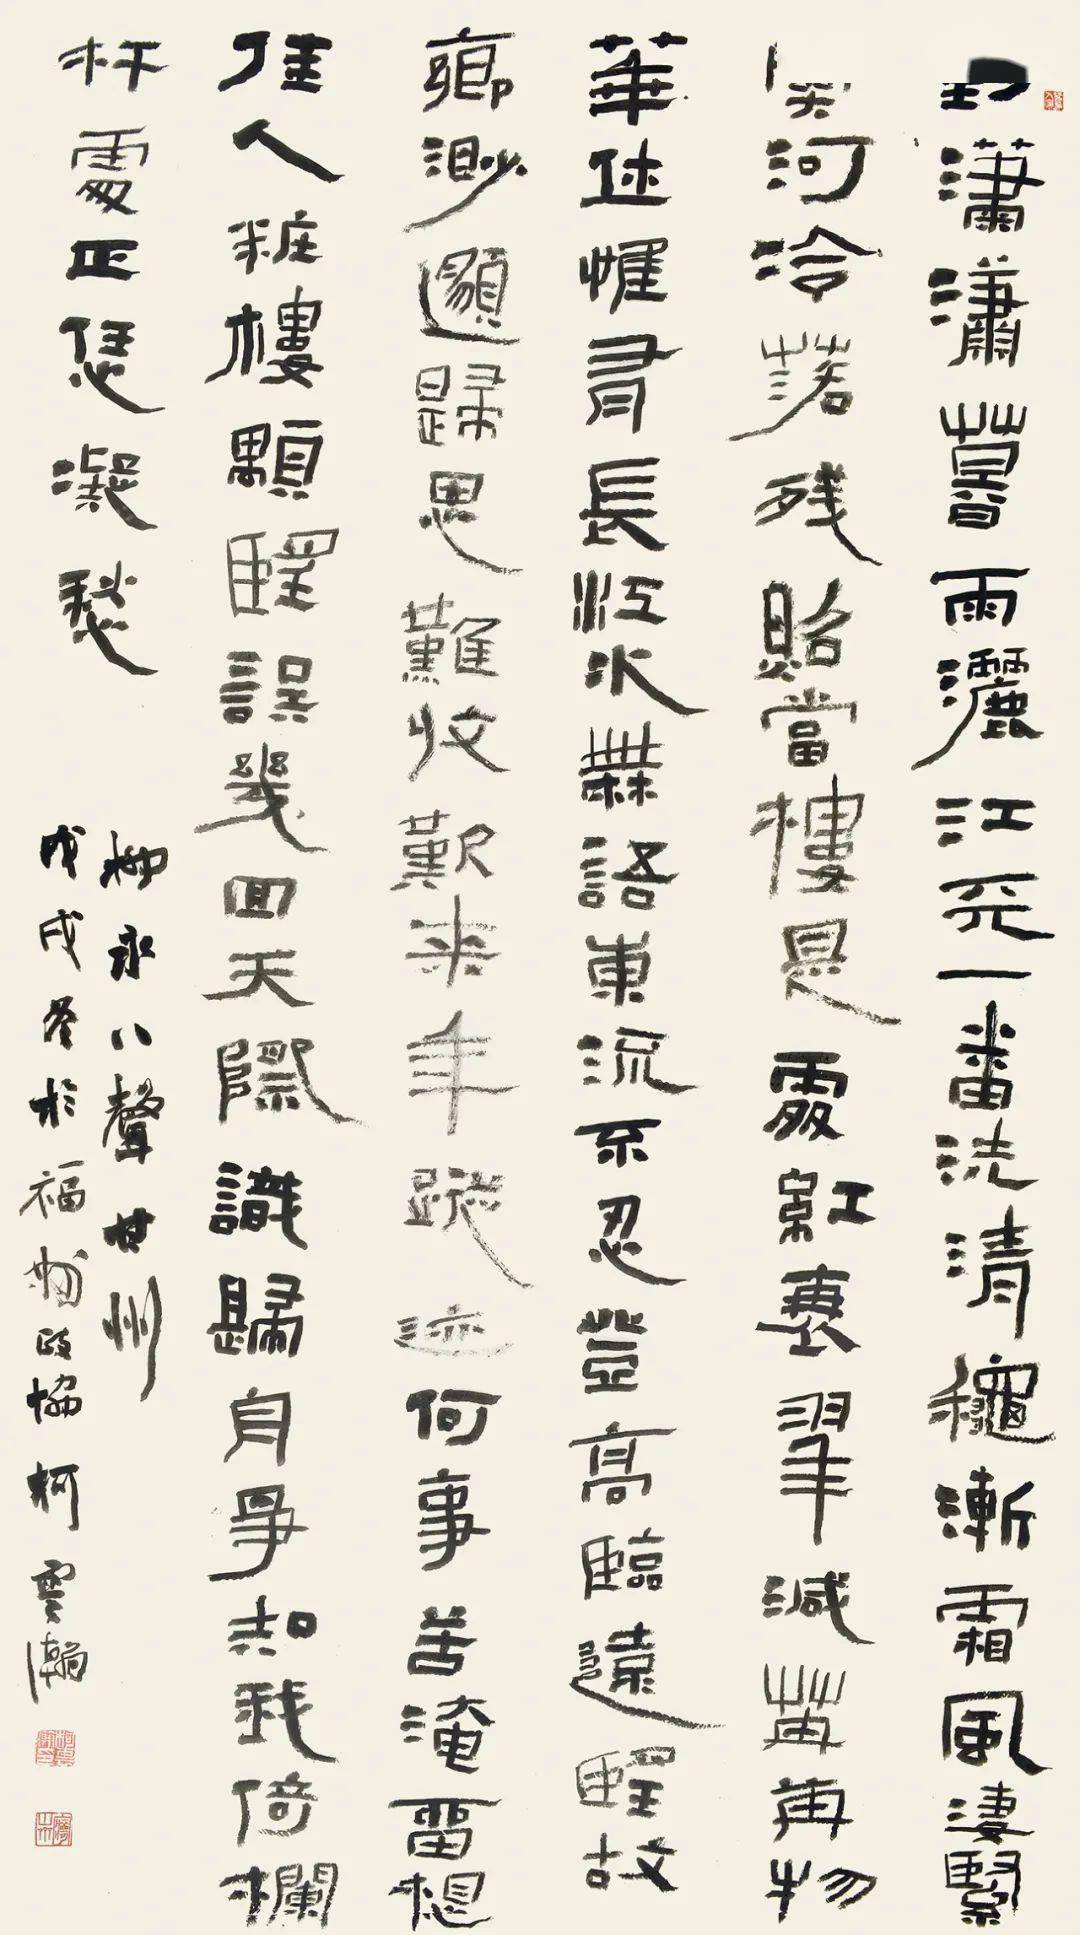 對瀟瀟暮雨灑江天一番洗清龝漸霜風淒緊
關河冷落残照當樓是處紅衰翠減苒苒物
華休惟有長江水無語東流不忍登高臨遠望故
鄉渺邈歸思難收歎来年蹤迹何事苦淹留想
佳人粧樓顒望誤幾回天際識歸舟爭知我倚欄
杆處正恁凝愁
柳永八聲甘州
戊戌冬於福政協柯雲瀚